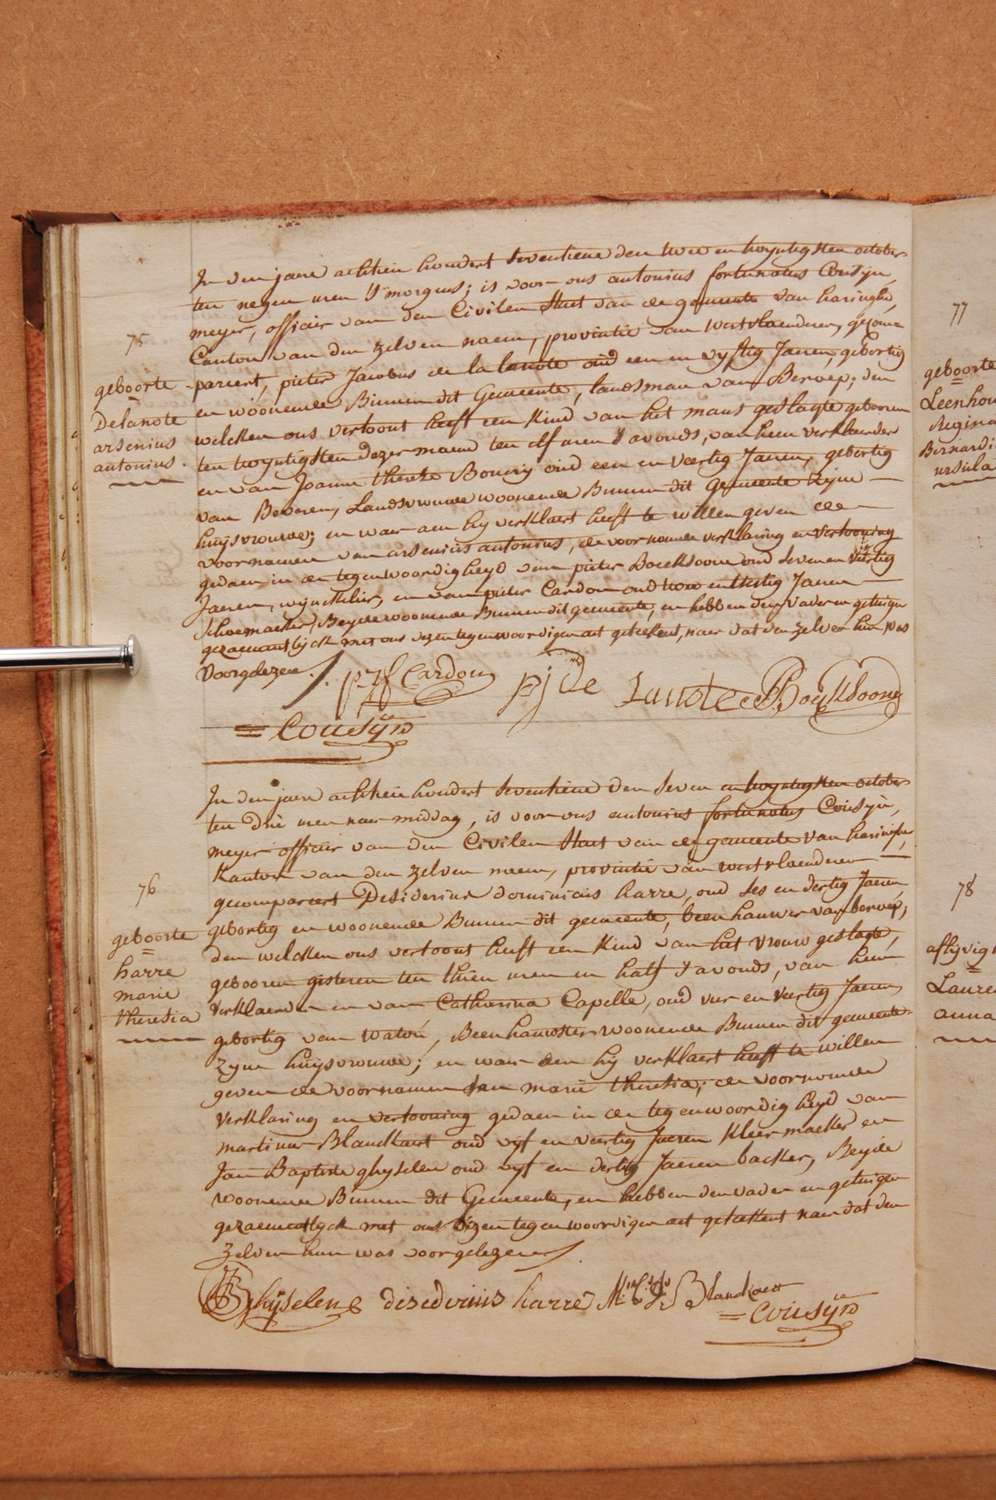 75
geboorte
Delanote
arsenius
antonius.
In den jaere achtien hondert seventiene den twee en twyntigsten october
ten negen uren 's morgens; is voor ons antonius fortunatus Cousyn,
meyer, officier van den Civilen Staet van de gemeente van haringhe,
Canton van den zelven naem, provintie van westvlaenderen, gecom-
pareert, pieter Jacobus de la lanote oud een en vyftig Jaeren, gebortig
en woonende Binnen dit Gemeente, landsman van Beroep; den
welcken ons vertoont heeft een kind van het mans geslagte gebooren
ten twyntigsten dezer maend ten elf uren s'avonds, van hem verklaerder
en van Joanna therese Bouery oud een en veertig Jaeren, gebortig
van Beveren, Landsvrouwe woonende Binnen dit Gemeente zyne
huysvrouwe; en waer aen hy verklaert heeft te willen geven de
voornamen van arsenius antonius, de voornoemde verklaring en vertooning
gedaen in de tegenwoordigheyd van pieter Boeksoone oud seven en viertig
Jaeren, wynckelier, en van pieter Cardon oud twee en thertig Jaeren
schoemaeker, Beyde woonende Binnen dit gemeente, en hebben den vader en getuigen
gezaementlyck met ons dezen tegenwoordigen act geteekent, naer dat den zelven hun was
Voorgelezen
p:J:f: Cardon pj de Lanote P Boeksoone
= Cousyn
76
geboorte
harre
marie
theresia
In den jaere achtien hondert seventiene den seven en twyntigsten october
ten drie uren naer middag, is voor ons antonius fortunatus Cousyn,
meyer officier van den Civilen Staet van de gemeente van haringhe,
kanton van den zelven naem, provintie van westvlaenderen
gecompareert Desiderius dominicus harre, oud ses en dertig Jaeren,
gebortig en woonende Binnen dit gemeente, beenhauwer van beroep,
den welcken ons vertoont heeft een kind van het vrouw geslagte,
gebooren gisteren ten thien uren en half s'avonds, van hem
verklaerder en van Catharina Capelle, oud vier en veertig Jaeren
gebortig van watou, Beenhauster woonende Binnen dit gemeente
zyne huysvrouwe; en waer aen hy verklaert heeft te willen
geven de voornamen van marie theresia; de voornoemde
verklaring en vertooning gedaen in de tegenwoordigheyd van
martinus Blanckaert oud vyf en veertig Jaeren kleermaeker en
Jan Baptiste ghyselen oud vyf en dertig Jaeren backer, Beyde
woonende Binnen dit Gemeente, en hebben den vader en getuigen
gezaementlyck met ons dezen tegenwoordigen act geteekent naer dat den
zelven hun was voorgelezen
JB Ghyselen disiderius harre Blanckaert
= Cousyn
77
geboorte
Leenhou
Regina
Bernardi
ursula
78
aflyvig
Laure
anna